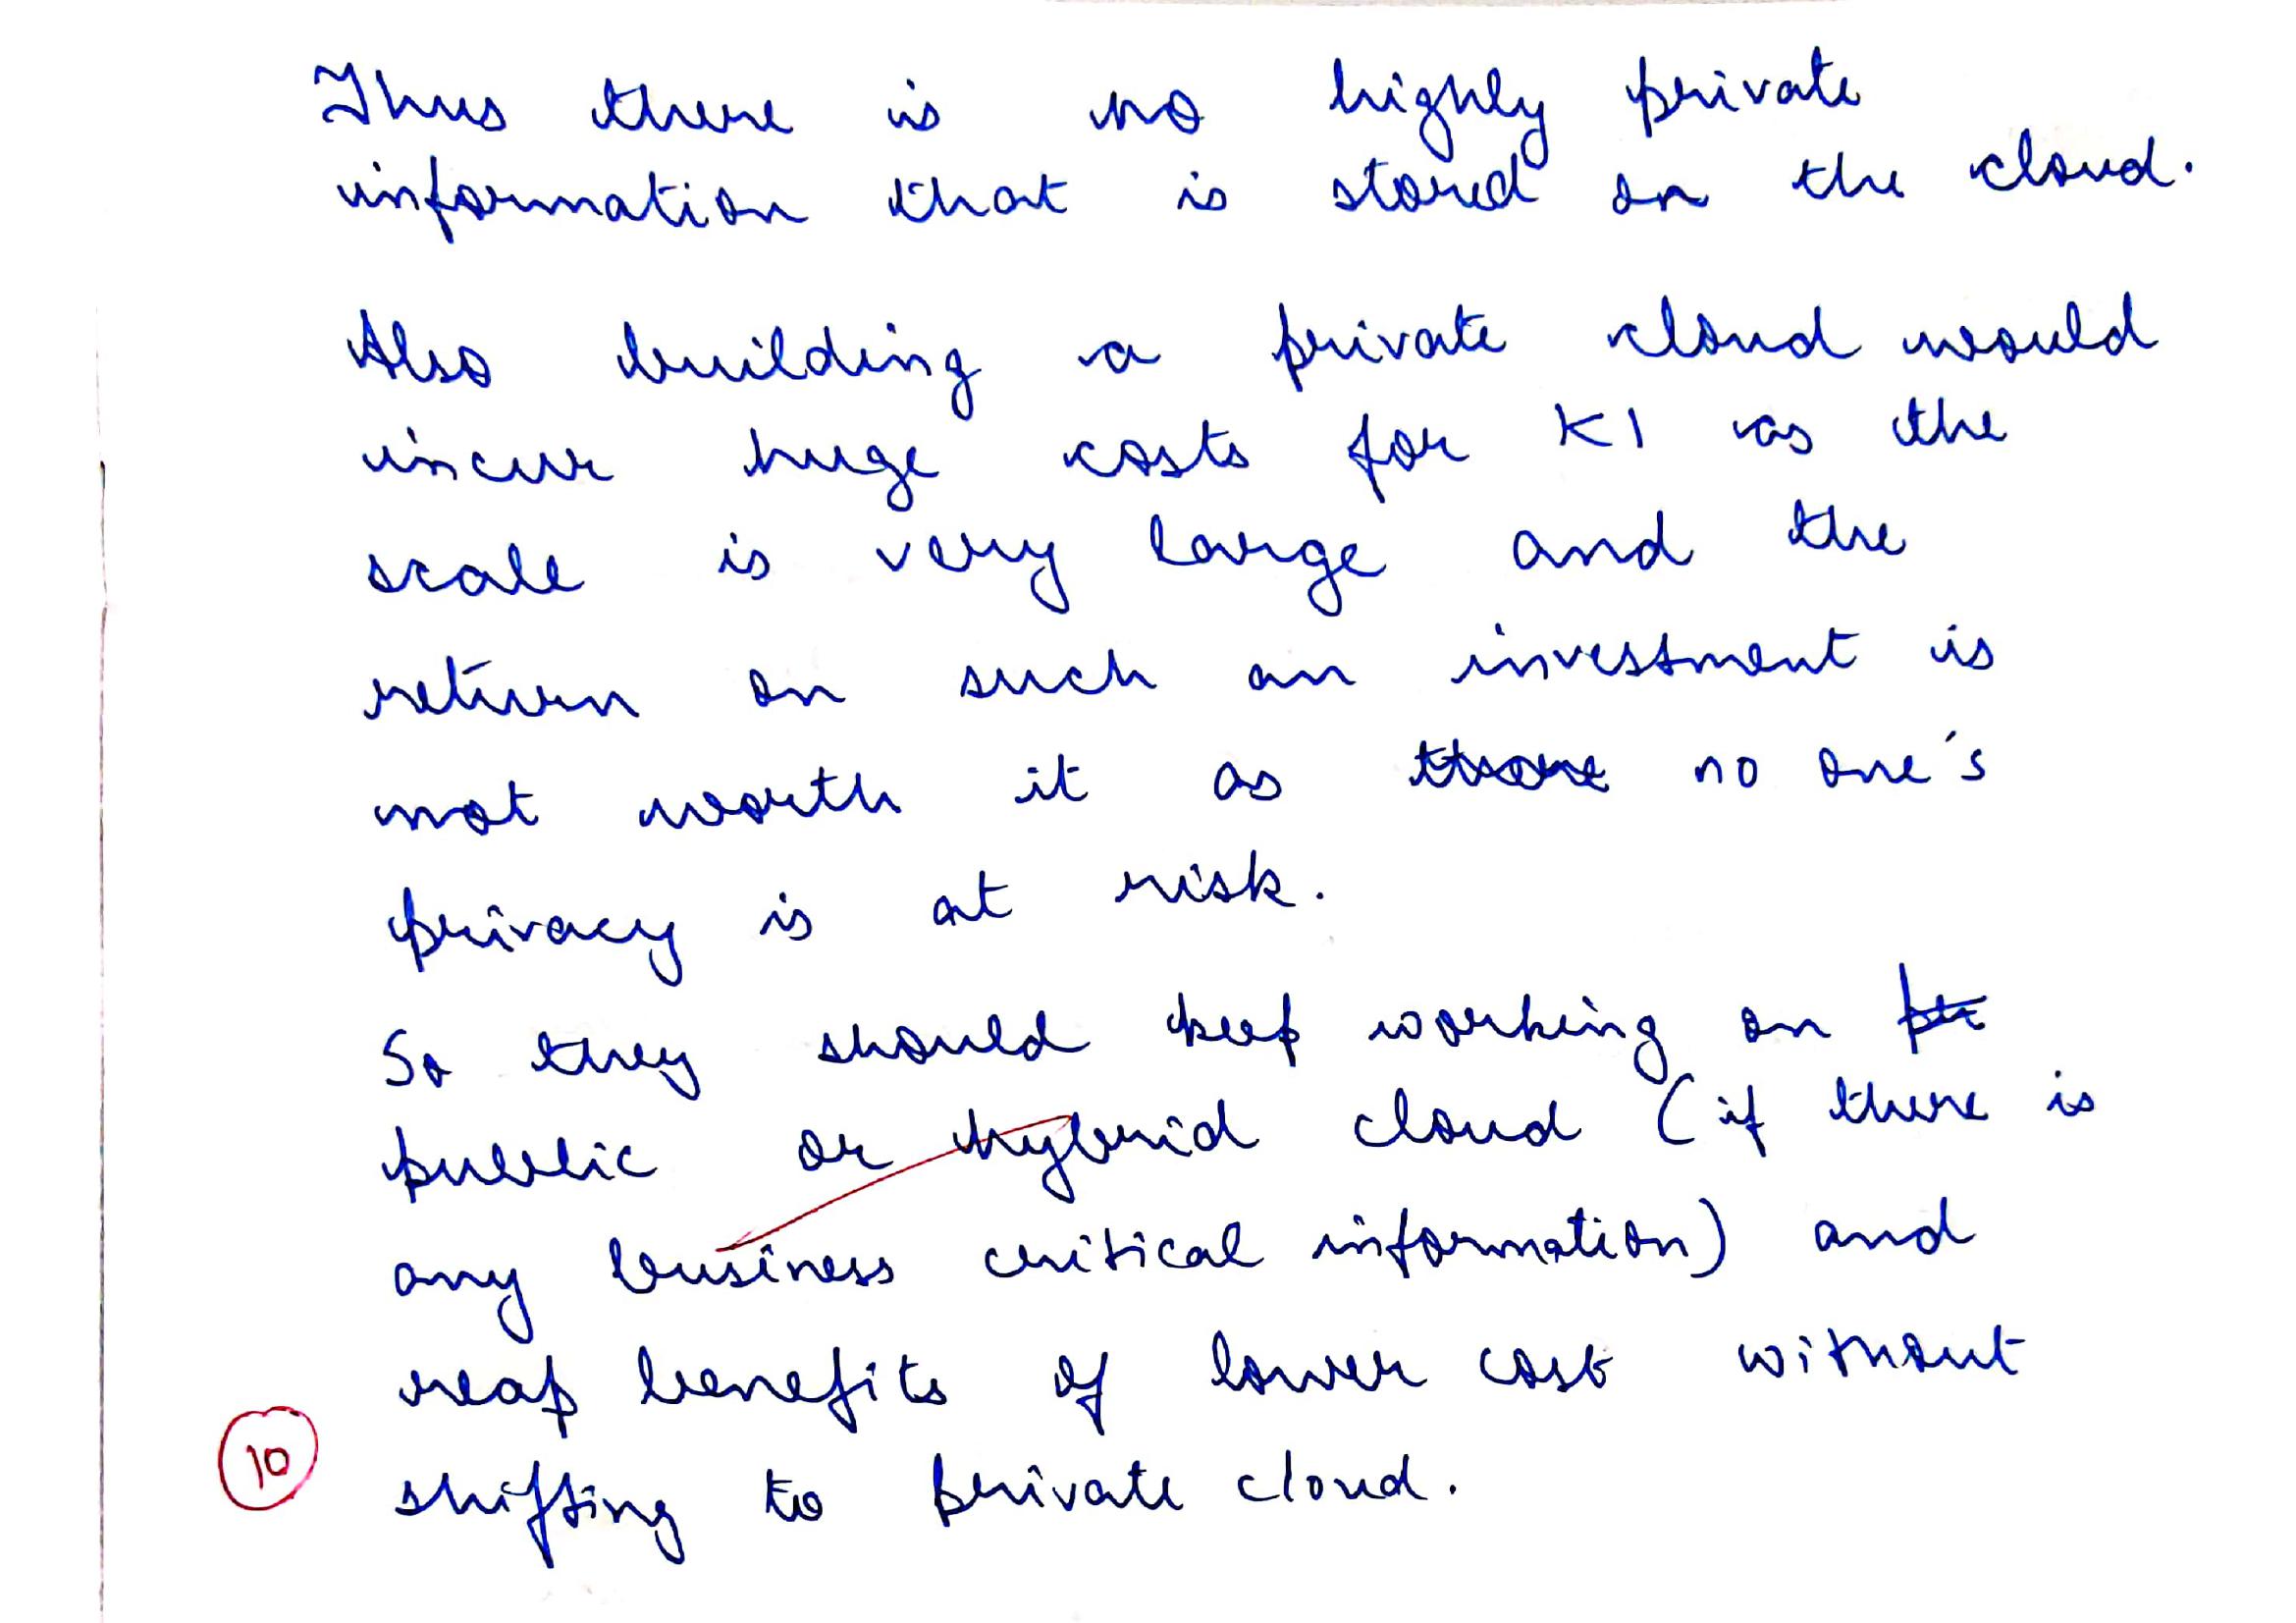 Thus there is no highly private
information that is stored on the cloud.
Also building a private cloud would
incur huge costs for KI as the
scale is very large and the
return on such an investment is
not worth it as no one's
privacy is at risk.
So they should keep working on
public or hybrid cloud (if there is
any business critical information) and
reap benefits of lower cost without
10
shifting to private cloud.